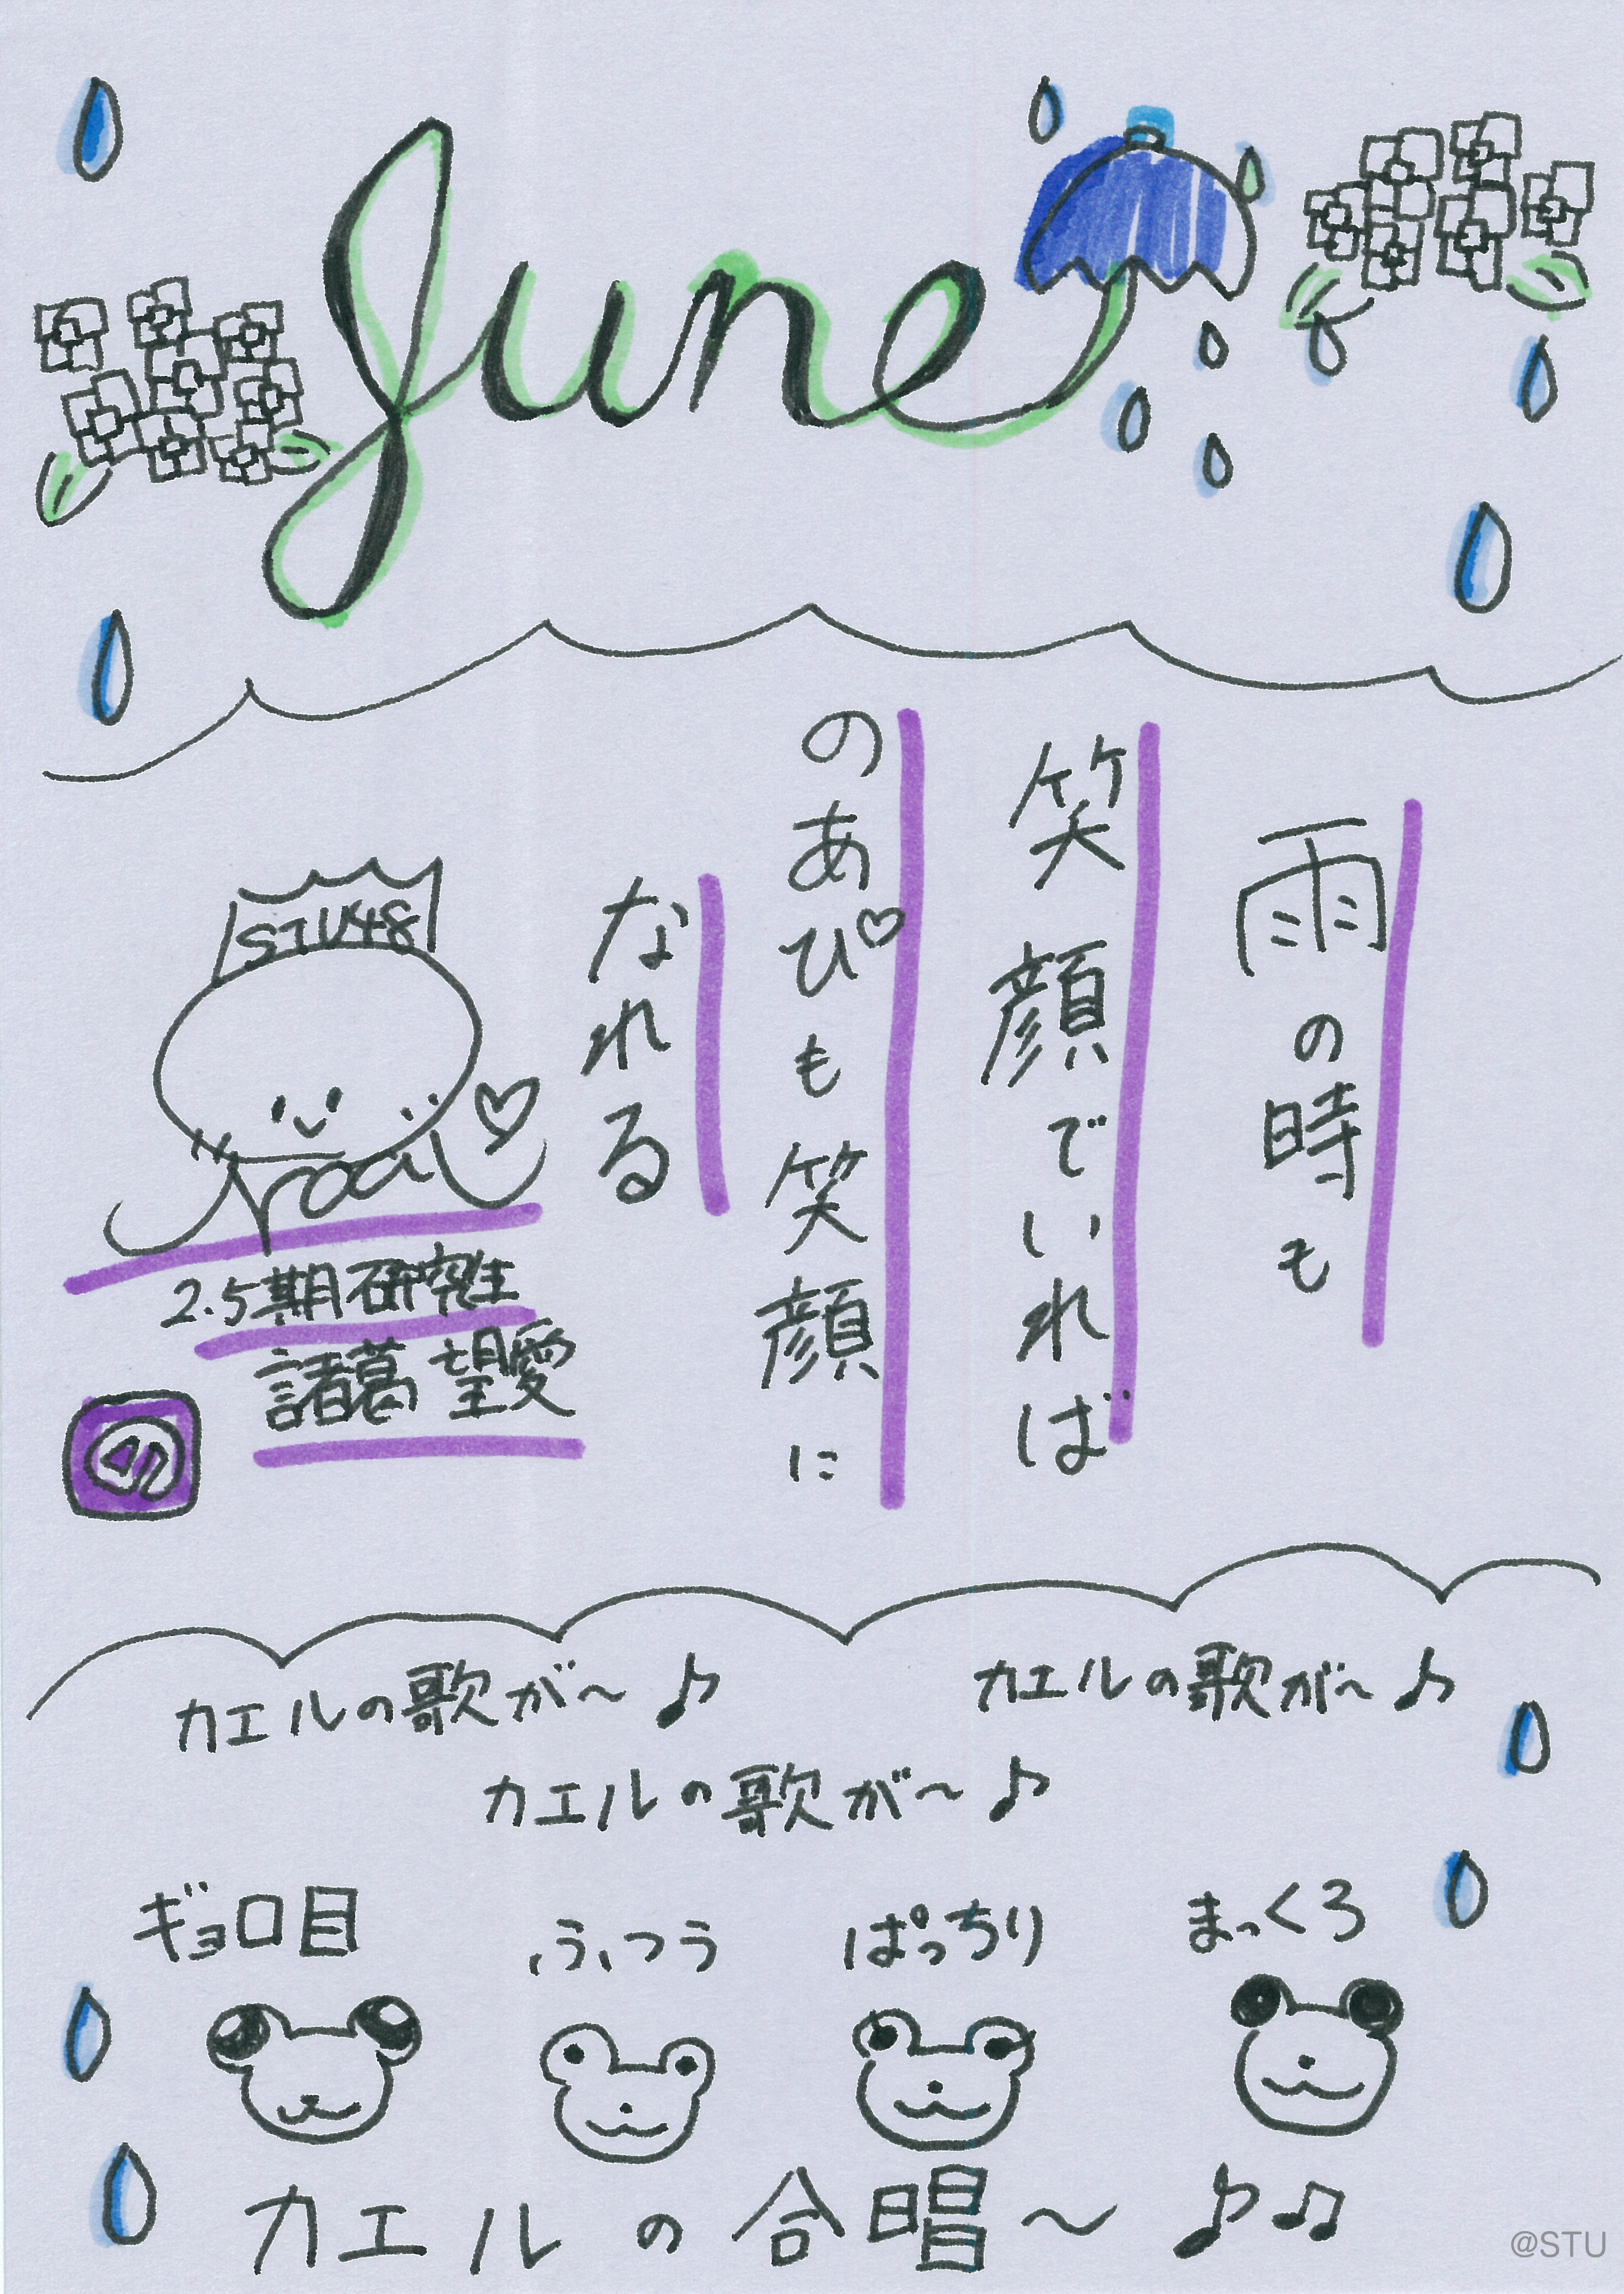 June
雨の時も
笑顔でいれば
のあぴも笑顔に
なれる
STU48
Noa
2.5期研究生
諸葛望愛
カエルの歌が〜♪
カエルの歌が〜♪
カエルの歌が〜♪
ギョロ目
ふつう
ぱっちり
まっくろ
カエルの合唱〜♪♫
@STU